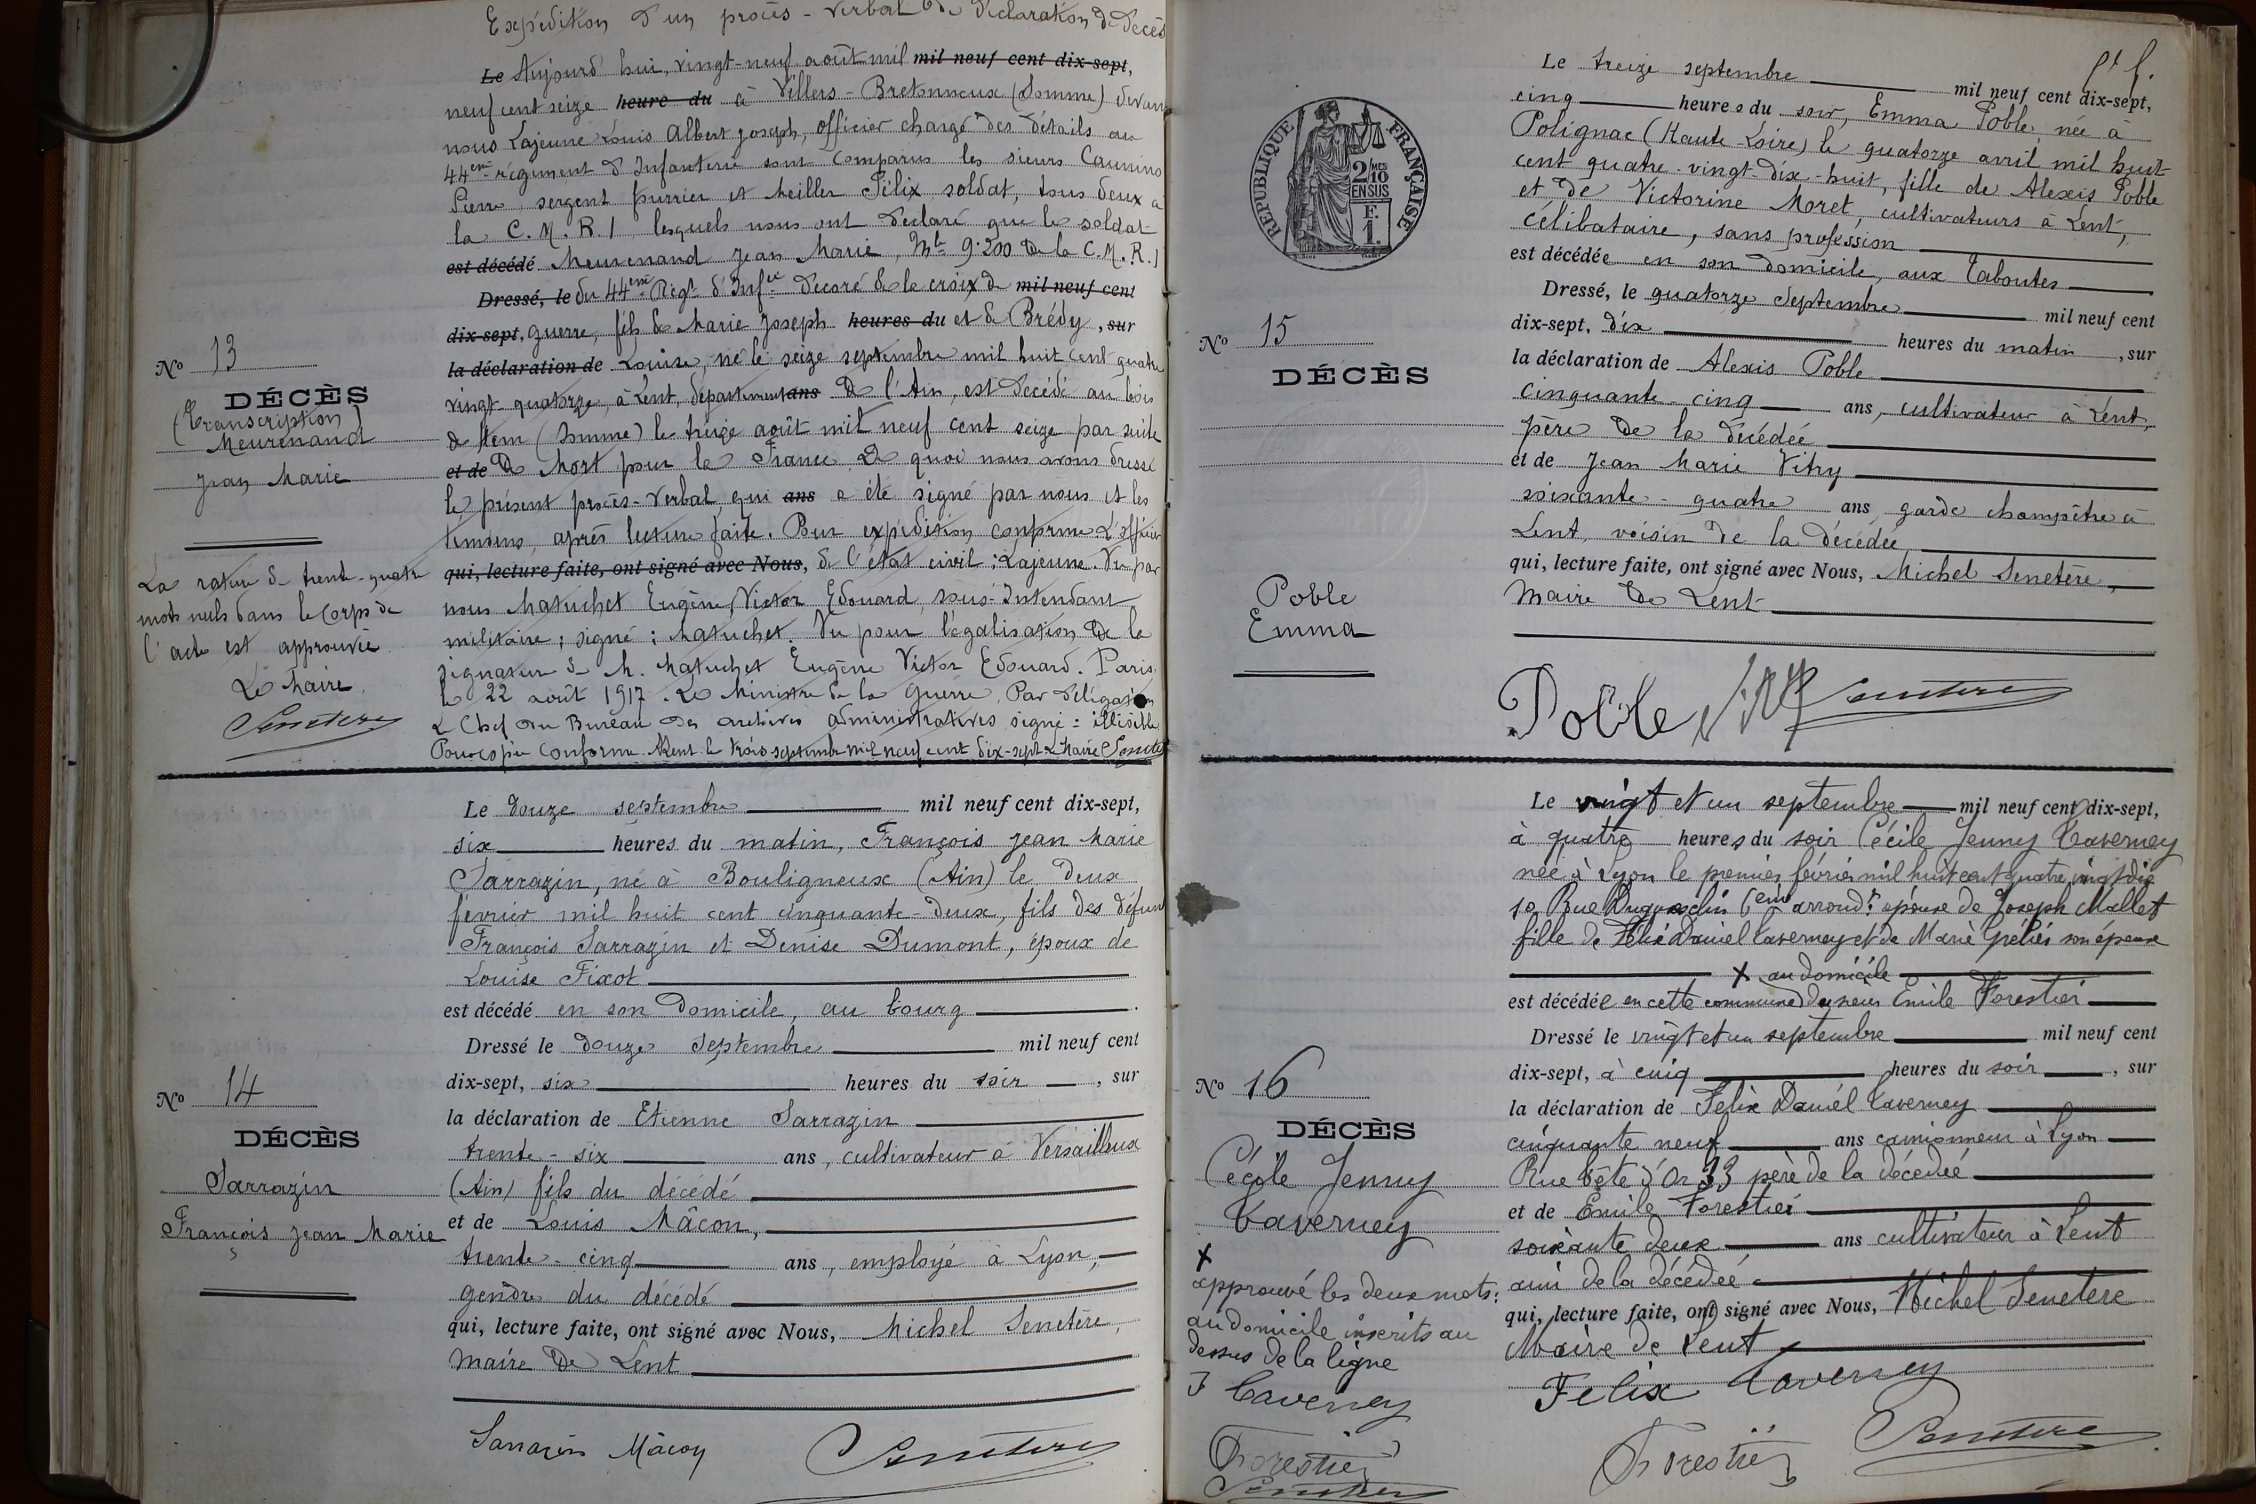 Expédition d'un procès-verbal de déclaration de décès
Le Aujourd'hui, vingt-neuf août mil mil neuf cent dix-sept,
neuf cent seize heure du à Villers-Bretonneux (Somme) devant
nous Lajeune Louis Albert Joseph, officier chargé des détails au
44eme régiment d'Infanterie sont comparus les sieurs
Pierre, sergent fourrier et Meiller Félix soldat, tous deux à
la C.M.R.1 lesquels nous ont déclaré que le soldat
est décédé Meurenand Jean Marie, Mle 9.200 de la C.M.R.1
Dressé, le du 44eme Régt d'Infie décoré de la croix de mil neuf cent
dix-sept, guerre, fils de Marie Joseph heures du et de Brédy, sur
la déclaration de Louise, né le seize septembre mil huit cent quatre
vingt-quatorze, à Lent, département ans de l'Ain, est décédé au bois
de Hem (Somme) le treize août mil neuf cent seize par suite
et de de Mort pour la France. De quoi nous avons dressé
le présent procès-verbal qui ans a été signé par nous et les
témoins, après lecture faite. Pour expédition conforme L'officier
qui, lecture faite, ont signé avec Nous, de l'état civil : Lajeune. Vu par
nous Matuchet Eugène Victor Edouard, Sous-Intendant
militaire ; signé : Matuchet. Vu pour légalisation de la
signature de M. Matuchet Eugène Victor Edouard. Paris,
le 22 août 1917. Le Ministre de la Guerre, Par délégation
Le Chef du Bureau des archives administratives signé : illisible
Pour copie conforme. Lent le trois septembre mil neuf cent dix-sept Le Maire Senetère
No 13
DÉCÈS
(Transcription)
Meurenand
Jean Marie
La rature de trente-quatre
mots nuls dans le corps de
l'acte est approuvée
Le Maire,
Senetère
Le douze septembre mil neuf cent dix-sept,
six heures du matin, François Jean Marie
Sarrazin, né à Bouligneux (Ain) le deux
février mil huit cent cinquante-deux, fils des défunts
François Sarrazin et Denise Dumont, époux de
Louise Fixot
est décédé en son domicile, au bourg.
Dressé le douze septembre mil neuf cent
dix-sept, six heures du soir, sur
la déclaration de Etienne Sarrazin
trente-six ans, cultivateur à Versailleux
(Ain) fils du décédé
et de Louis Mâcon,
trente-cinq ans, employé à Lyon,
gendre du décédé
qui, lecture faite, ont signé avec Nous, Michel Senetère,
maire de Lent
Sarrazin Mâcon Senetère
No 14
DÉCÈS
Sarrazin
François Jean Marie
Le treize septembre mil neuf cent dix-sept,
cinq heures du soir, Emma Poble, née à
Polignac (Haute-Loire) le quatorze avril mil huit
cent quatre-vingt-dix-huit, fille de Alexis Poble
et de Victorine Moret, cultivateurs à Lent,
célibataire, sans profession
est décédée en son domicile, aux Taboutes
Dressé, le quatorze septembre mil neuf cent
dix-sept, dix heures du matin, sur
la déclaration de Alexis Poble
cinquante-cinq ans, cultivateur à Lent,
père de la décédée
et de Jean Marie Vitry
soixante-quatre ans garde champêtre à
Lent, voisin de la décédée
qui, lecture faite, ont signé avec Nous, Michel Senetère,
Maire de Lent
Poble Senetère
RÉPUBLIQUE FRANÇAISE
2/10 MES
EN SUS
F.
1.
No 15
DÉCÈS
Poble
Emma
Le vingt et un septembre mil neuf cent dix-sept,
à quatre heures du soir Cécile Jenny Taverney
née à Lyon le premier février mil huit cent quatre vingt dix
10 Rue Duguesclin 6eme arrondt épouse de Joseph Mallet
fille de Félix Daniel Taverney et de Marie son épouse
x au domicile
est décédée en cette commune du sieur Emile Forestier
Dressé le vingt et un septembre mil neuf cent
dix-sept, à cinq heures du soir, sur
la déclaration de Félix Daniel Taverney
cinquante neuf ans camionneur à Lyon
Rue Tête d'Or 33 père de la décédée
et de Emile Forestier
soixante deux ans cultivateur à Lent
ami de la décédée
qui, lecture faite, ont signé avec Nous, Michel Senetère
Maire de Lent
Felix Taverney
Forestier Senetère
No 16
DÉCÈS
Cécile Jenny
Taverney
x
approuvé les deux mots :
au domicile inscrits au
dessus de la ligne
F Taverney
Forestier
Senetère